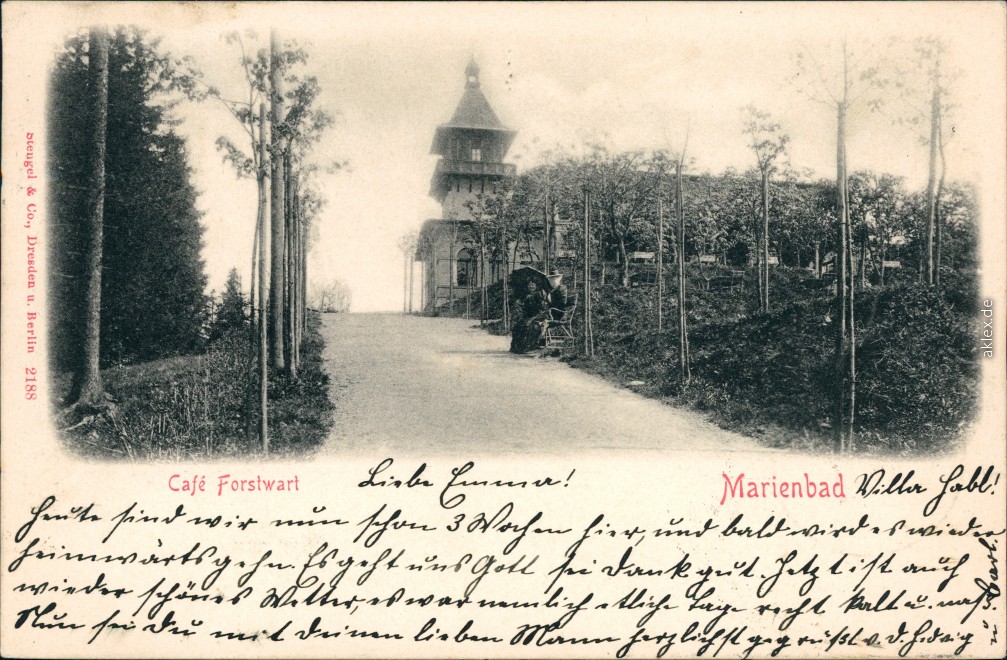 Stengel & Co., Dresden u. Berlin 2188
aklex.de
Café Forstwart
Marienbad
Liebe Emma!
Villa Habl!
Heute sind wir nun schon 3 Wochen hier, und bald wird es wieder
heimwärts gehn. Es geht uns Gott sei Dank gut. Jetzt ist auch
wieder schönes Wetter, es war nemlich etliche Tage recht kalt u. naß
Nun sei Du mit Deinen lieben Mann herzlichst gegrüßt v. D. Hedwig
u.